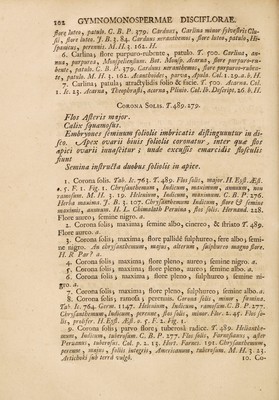 102 GYMNOMONOSPERMÆ DISCIFLORÆ.
flore luteo, patulo. C. B. P. 379. Carduus, Carlina minor sylvestris Clu-
sii, flore luteo. J. B. 3. 84. Carduus acranthemus, flore luteo, patulo, Hi-
spanicus, perennis. M. H. 3. 162. H.
6. Carlina; flore purpuro-rubente, patulo. T. 500. Carlina, an-
nua, purpurea, Monspeliensium. Bot. Monsp. Acarna, flore purpuro-ru-
bente, patulo. C. B. P. 379. Carduus acranthemus, flore purpureo-ruben-
te, patulo. M. H. 3. 162. Acanthoides, parva, Apula. Col. 1. 29. a. b. H.
7. Carlina; patula; atractylidis folio & facie. T. 500. Acarna. Cæl.
1. It. 23. Acarna, Theophrasti, acorna, Plinii. Col. Ib. Descript. 26. b. H.
CORONA SOLIS. T. 489. 279.
Flos Asteris major.
Calix squamosus.
Embryones seminum foliolis imbricatis distinguuntur in di-
sco. Apex ovarii binis foliolis coronatur, inter quæ flos
apici ovarii innascitur; unde excussis emarcidis flosculis
fiunt
Semina instructa duobus foliolis in apice.
1. Corona solis. Tab. Ic. 763. T. 489. Flos solis, major. H. Eyst. Æst.
o. 5. F. 1. Fig. 1. Chrysanthemum, Indicum, maximum, annuum, non
ramosum. M. H. 3. 19. Helenium, Indicum, maximum. C. B. P. 276.
Herba maxima. J. B. 3. 107. Chrysanthemum Indicum, flore & semine
maximis, annuum. H. L. Climalatis Pornina, flos solis. Hernand. 228.
Flore aureo, semine nigro. a.
2. Corona solis; maxima; semine albo, cinereo, & striato T. 489.
Flore aureo. a.
3. Corona solis; maxima; flore pallidè sulphureo, ferè albo; semi-
ne nigro. An chrysanthemum, majus, alterum, sulphureo magno flore.
H. R. Par? a.
4. Corona solis; maxima; flore pleno, aureo; semine nigro. a.
5. Corona solis; maxima; flore pleno, aureo; semine albo. a.
6. Corona solis; maxima; flore pleno, sulphureo; semine ni-
gro. a.
7. Corona solis; maxima; flore pleno, sulphureo; semine albo. a.
8. Corona solis; ramosa; perennis. Corona solis, minor, femina.
Tab. Ic. 764. Germ. 1147. Helenium, Indicum, ramosum. C. B. P. 277.
Chrysanthemum, Indicum, perenne, flos solis, minor. Flor. 2. 45. Flos so-
lis, prolifer. H. Eyst. Æst. o. 5. F. 2. Fig. 1.
9. Corona solis; parvo flore; tuberosâ radice. T. 489. Helianthe-
mum, Indicum, tuberosum. C. B. P. 277. Flos solis, Farnesianus, aster
Peruanus, tuberosus. Col. p. 2. 13. Hort. Farnes. 191. Chrysanthemum,
perenne, majus, foliis integris, Americanum, tuberosum. M. H. 3. 23.
Artichoki sub terrâ vulgò.
10. Co-